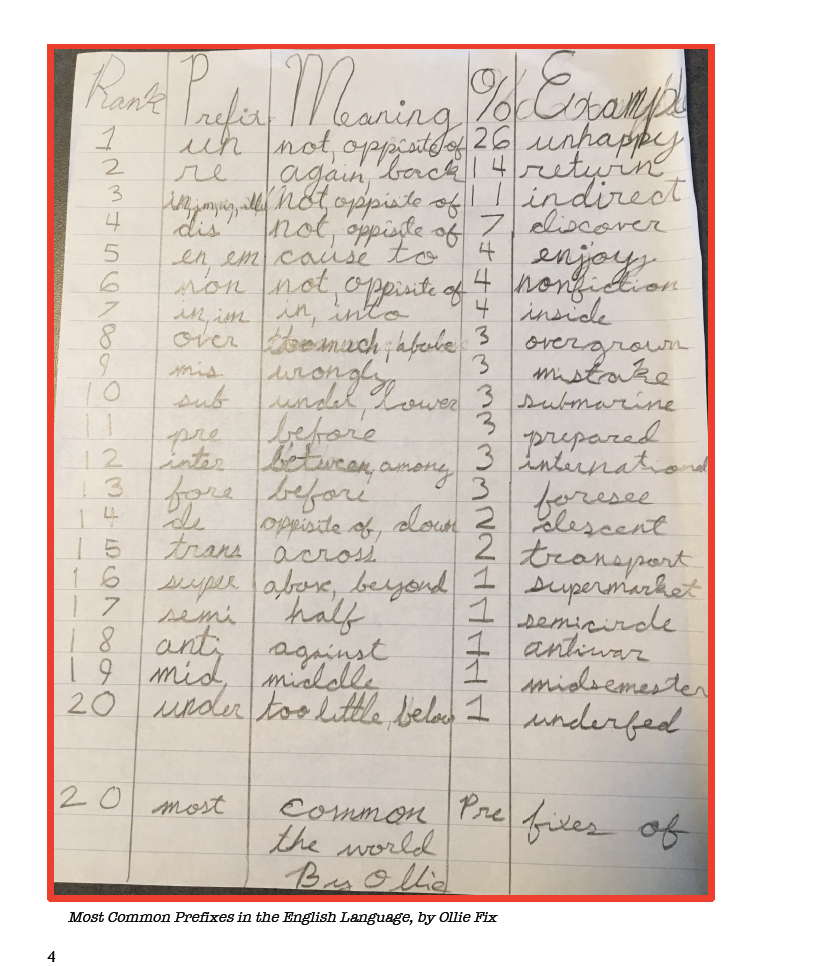 Rank Prefix Meaning % Example
1 un not, oppisite of 26 unhappy
2 re again, back 14 return
3 in, im, ir, ill not, oppisite of 11 indirect
4 dis not, oppisite of 7 discover
5 en, em cause to 4 enjoy
6 non not, oppisite of 4 nonfiction
7 in, im in, into 4 inside
8 over too much, above 3 overgrown
9 mis wrongly 3 mistake
10 sub under, lower 3 submarine
11 pre before 3 prepared
12 inter between, among 3 international
13 fore before 3 foresee
14 de oppisite of, down 2 descent
15 trans across 2 transport
16 super above, beyond 1 supermarket
17 semi half 1 semicircle
18 anti against 1 antiwar
19 mid middle 1 midsemester
20 under too little, below 1 underfed
20 most common Pre fixes of
the world
By Ollie
Most Common Prefixes in the English Language, by Ollie Fix
4